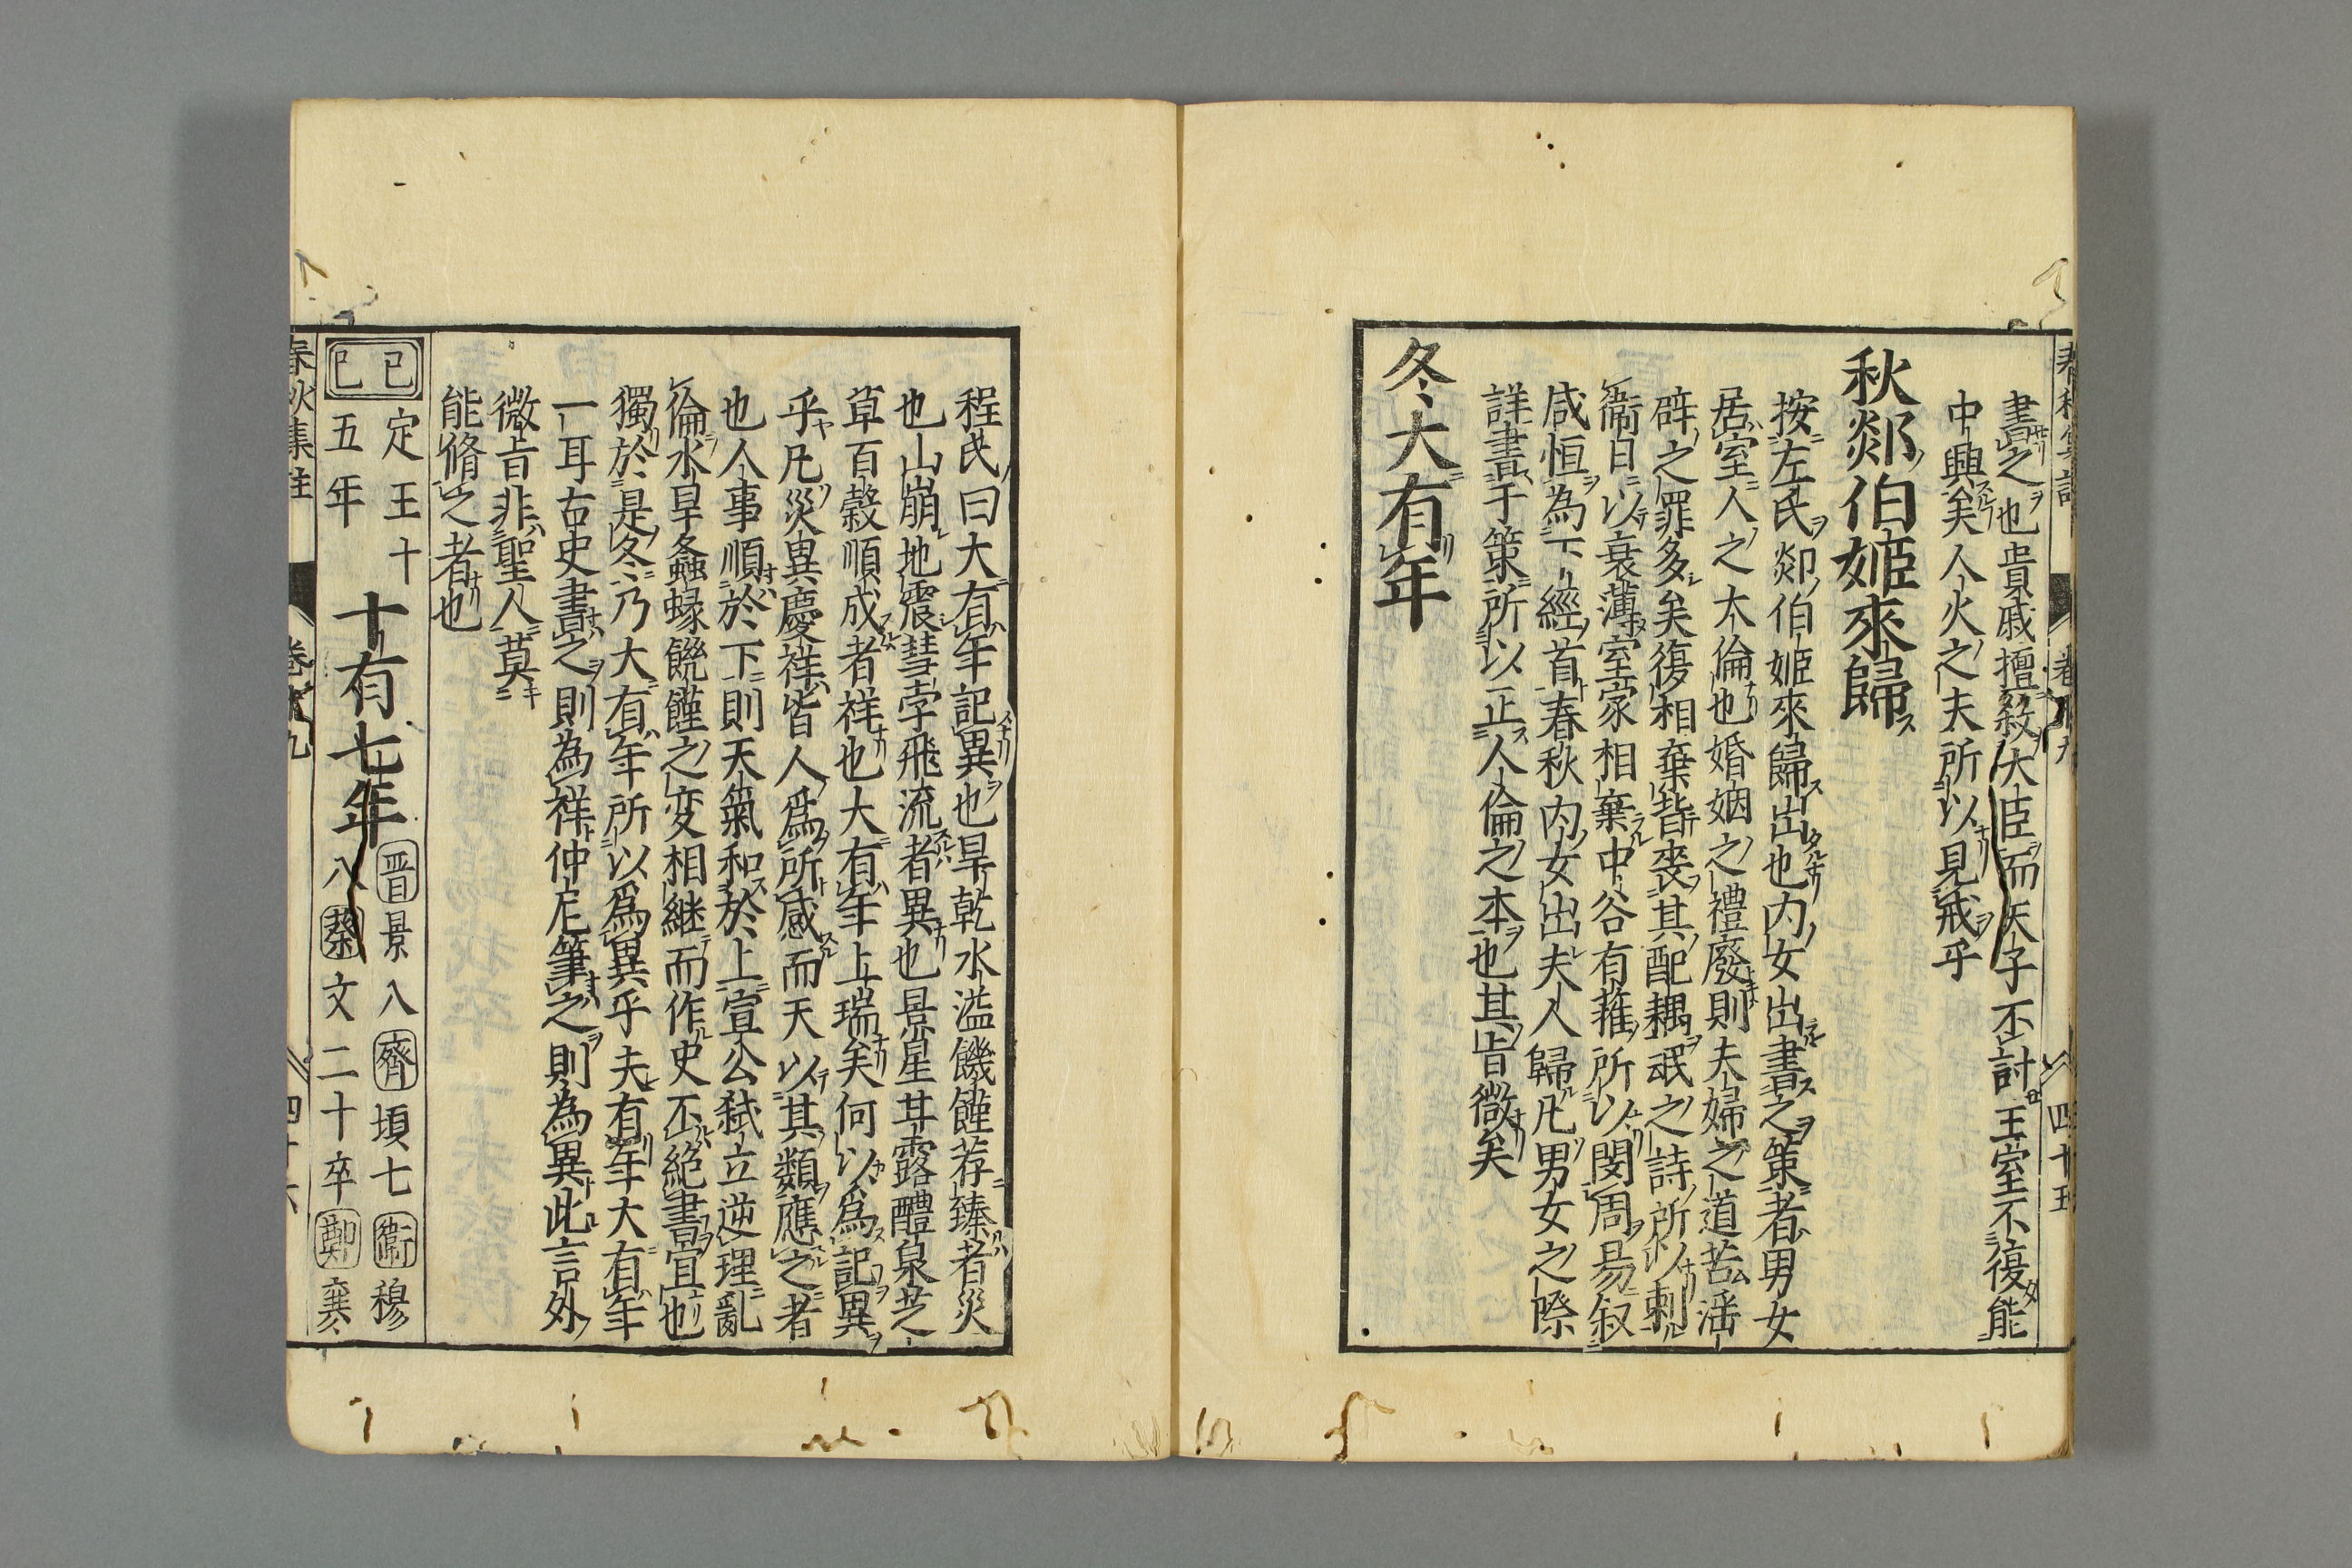 書之也貴戚擅殺大臣而天子不討王室不復能
中興矣人火之夫所以見戒乎
秋郯伯姬來歸
按左氏郯伯姬來歸出也内女出書之策者男女
居室人之大倫也婚姻之禮廢則夫婦之道苦滛
辟之罪多矣復相棄背喪其配耦氓之詩所以刺
衞日以衰薄室家相棄中谷有蓷所以閔周易叙
咸恒為下經首春秋内女出夫人歸凡男女之際
詳書于策所以正人倫之本也其旨微矣
冬大有年
程氏曰大有年記異也旱乾水溢饑饉荐臻者災
也山崩地震彗孛飛流者異也景星甘露醴泉芝
草百穀順成者祥也大有年上瑞矣何以為記異
乎凡災異慶祥皆人爲所感而天以其類應之者
也人事順於下則天氣和於上宣公弑立逆理亂
倫水旱螽蝝饑饉之変相継而作史不絶書宜也
獨於是冬乃大有年所以爲異乎夫有年大有年
一耳古史書之則為祥仲尼筆之則為異此言外
微旨非聖人莫
能脩之者也
己巳
定王十五年
十有七年
晋景八齊頃七衞穆
八蔡文二十卒鄭襄
春秋集註 卷九